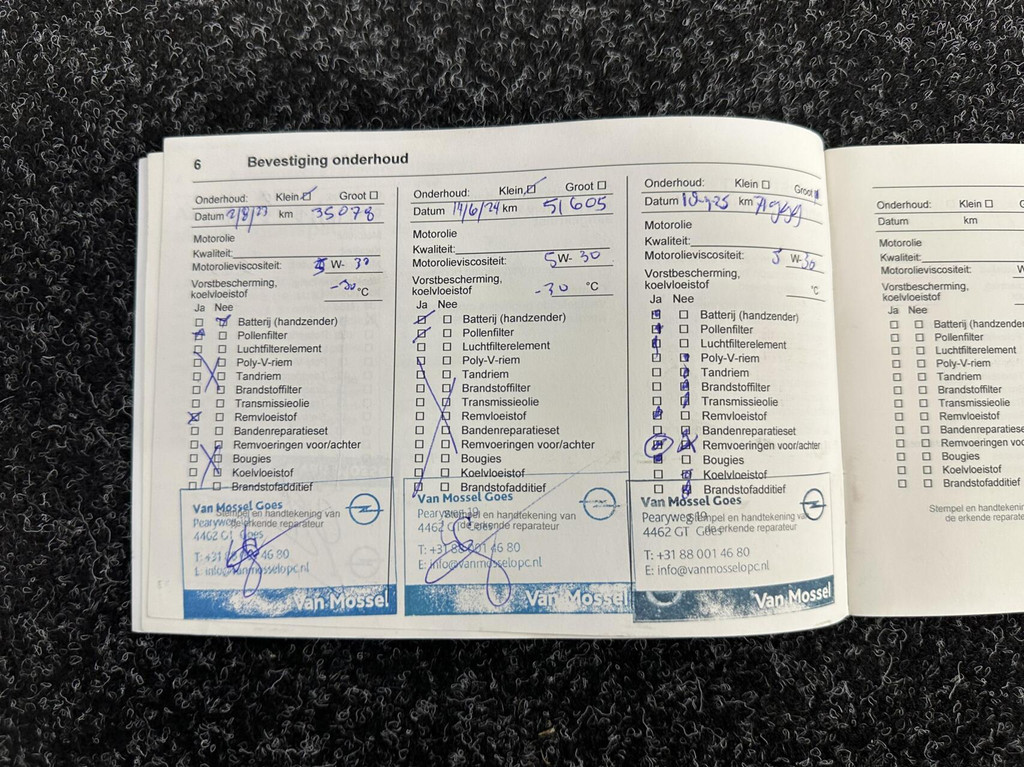 6 Bevestiging onderhoud
Onderhoud: Klein Groot
Datum 2/8/23 km 35078
Motorolie
Kwaliteit:
Motorolieviscositeit: 5 W- 30
Vorstbescherming,
koelvloeistof -30 °C
Ja Nee
Batterij (handzender)
Pollenfilter
Luchtfilterelement
Poly-V-riem
Tandriem
Brandstoffilter
Transmissieolie
Remvloeistof
Bandenreparatieset
Remvoeringen voor/achter
Bougies
Koelvloeistof
Brandstofadditief
Stempel en handtekening van
de erkende reparateur
Van Mossel Goes
4462 GT Goes
46 80
Van Mossel
Onderhoud: Klein Groot
Datum 14/6/24 km 51605
Motorolie
Kwaliteit:
Motorolieviscositeit: 5 W- 30
Vorstbescherming,
koelvloeistof -30 °C
Ja Nee
Batterij (handzender)
Pollenfilter
Luchtfilterelement
Poly-V-riem
Tandriem
Brandstoffilter
Transmissieolie
Remvloeistof
Bandenreparatieset
Remvoeringen voor/achter
Bougies
Koelvloeistof
Brandstofadditief
Stempel en handtekening van
de erkende reparateur
Van Mossel Goes
Pearyweg 19
4462 GT Goes
T: +31 88 001 46 80
E: info@vanmosselopc.nl
Van Mossel
Onderhoud: Klein Groot
Datum km
Motorolie
Kwaliteit:
Motorolieviscositeit: 5 W- 30
Vorstbescherming,
koelvloeistof °C
Ja Nee
Batterij (handzender)
Pollenfilter
Luchtfilterelement
Poly-V-riem
Tandriem
Brandstoffilter
Transmissieolie
Remvloeistof
Bandenreparatieset
Remvoeringen voor/achter
Bougies
Koelvloeistof
Brandstofadditief
Stempel en handtekening van
de erkende reparateur
Van Mossel Goes
Pearyweg 19
4462 GT Goes
T: +31 88 001 46 80
E: info@vanmosselopc.nl
Van Mossel
Onderhoud: Klein G
Datum km
Motorolie
Kwaliteit:
Motorolieviscositeit: W
Vorstbescherming,
koelvloeistof
Ja Nee
Batterij (handzende
Pollenfilter
Luchtfilterelement
Poly-V-riem
Tandriem
Brandstoffilter
Transmissieolie
Remvloeistof
Bandenreparatiese
Remvoeringen voo
Bougies
Koelvloeistof
Brandstofadditief
Stempel en handtekening
de erkende reparateur